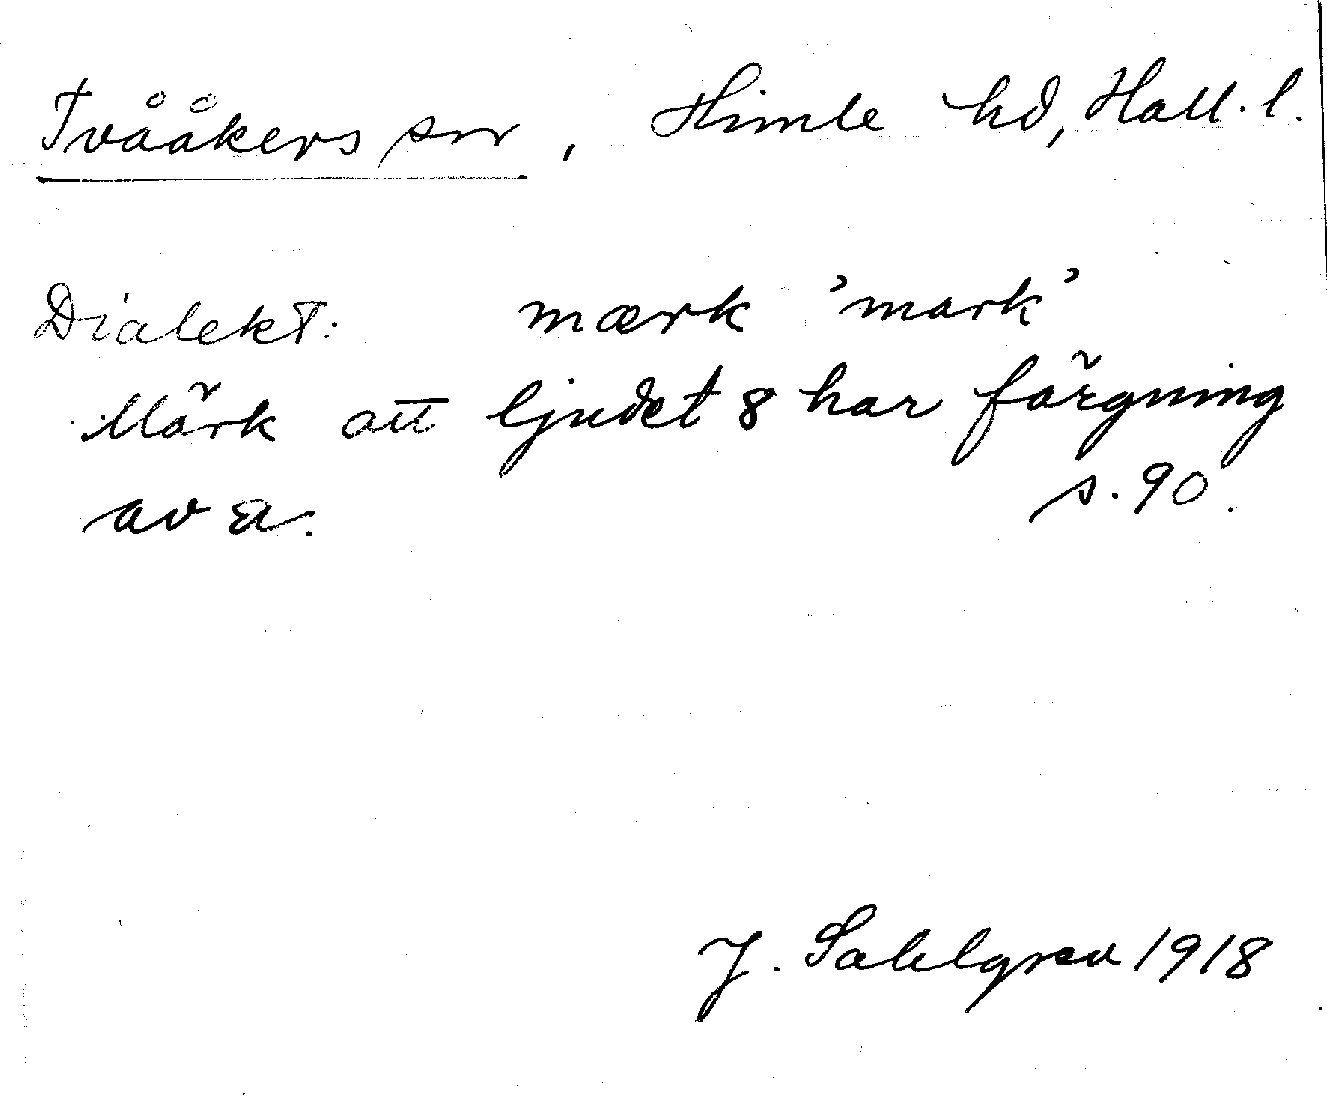 Tvååkers sn, Himle hd, Hall. l.
Dialekt: mærk 'mark'
Märk att ljudet 8 har färgning
av a. s. 90.
J. Sahlgren 1918